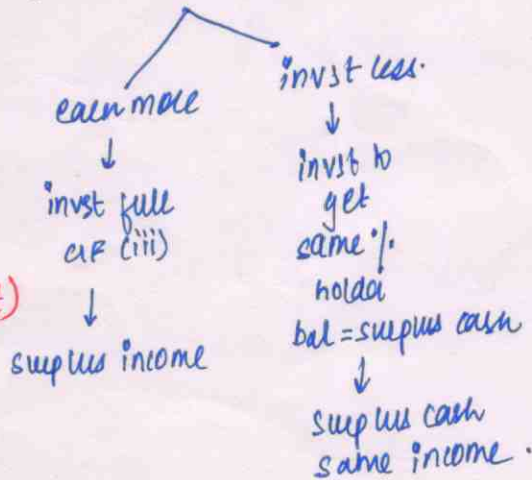 earn more
↓
invst full
CIF (iii)
↓
surplus income
invst less.
↓
invst to
get
same %
holdg
bal = surplus cash
↓
surplus cash
same income.